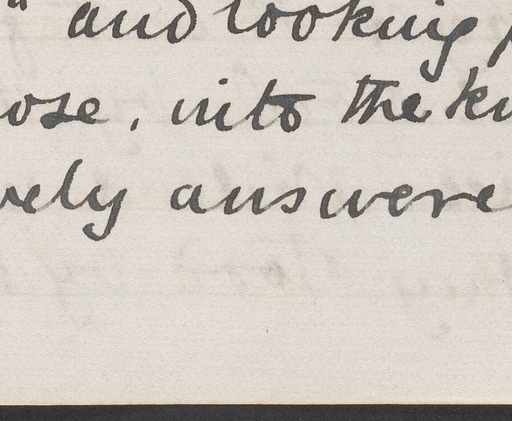 " and looking
ose, into the
vely answere